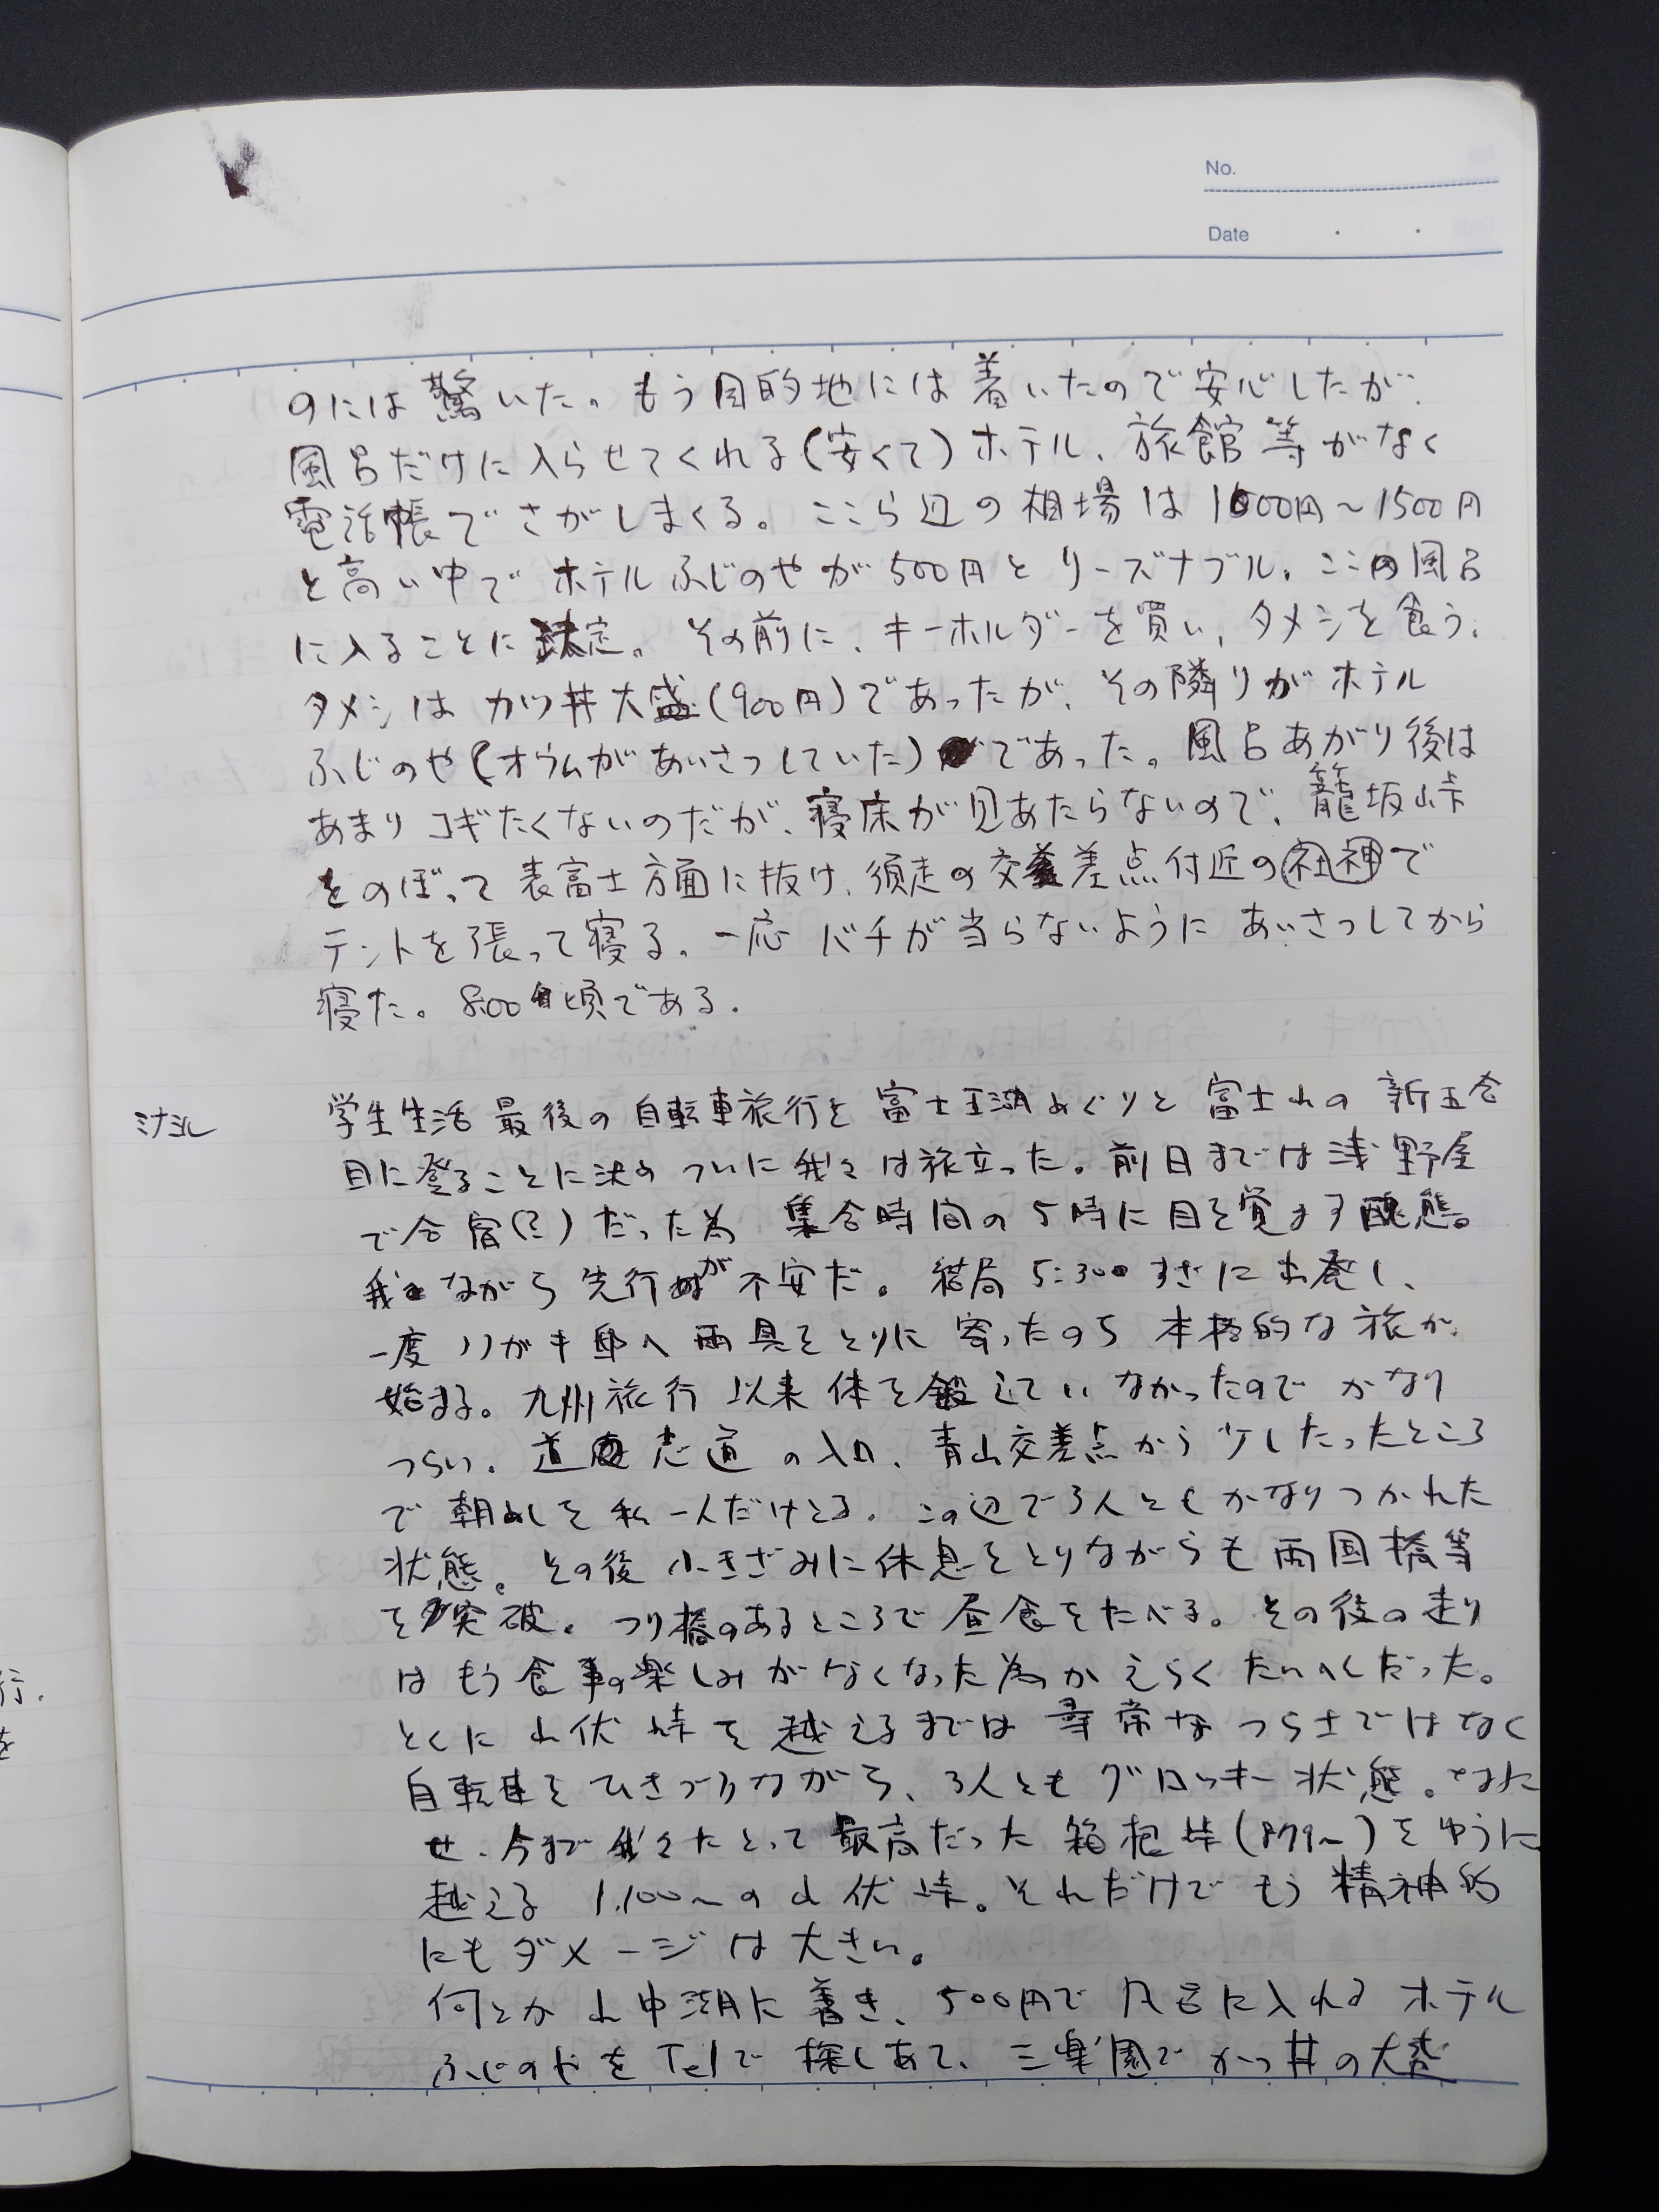 No.
Date
のには驚いた。もう目的地には着いたので安心したが、
風呂だけに入らせてくれる(安くて)ホテル、旅館等がなく
電話帳でさがしまくる。ここら辺の相場は1000円〜1500円
と高い中でホテルふじのやが500円とリーズナブル。ここの風呂
に入ることに決定。その前に、キーホルダーを買い、タメシを食う。
タメシはカツ丼大盛(900円)であったが、その隣りがホテル
ふじのや(オウムがあいさつしていた)であった。風呂あがり後は
あまりコギたくないのだが、寝床が見あたらないので、籠坂峠
をのぼって表富士方面に抜け、須走の交差点付近の社神で
テントを張って寝る。一応バチが当らないようにあいさつしてから
寝た。8:00頃である。
学生生活最後の自転車旅行を富士五湖めぐりと富士山の新五合
目に登ることに決めついに我々は旅立った。前日までは浅野屋
で合宿(?)だった為集合時間の5時に目を覚ます醜態。
我ながら先行が不安だ。結局5:30すぎに出発し、
一度ノリガキ邸へ雨具をとりに寄ったのち本格的な旅が
始まる。九州旅行以来体を鍛えていなかったのでかなり
つらい。道志道の入口、青山交差点から少したったところ
で朝めしを私一人だけとる。この辺で3人ともかなりつかれた
状態。その後小きざみに休息をとりながらも両国橋等
を突破。つり橋のあるところで昼食をたべる。その後の走り
はもう食事の楽しみがなくなった為かえらくたいへんだった。
とくに山伏峠を越えるまでは尋常なつらさではなく
自転車をひきづりながら、3人ともグロッキー状態。なに
せ、今まで我々にとって最高だった箱根峠(879m)をゆうに
越える1,100mの山伏峠。それだけでもう精神的
にもダメージは大きい。
何とか山中湖に着き、500円で風呂に入れるホテル
ふじのやをTelで探しあて、三楽園でかつ丼の大盛
行.
を